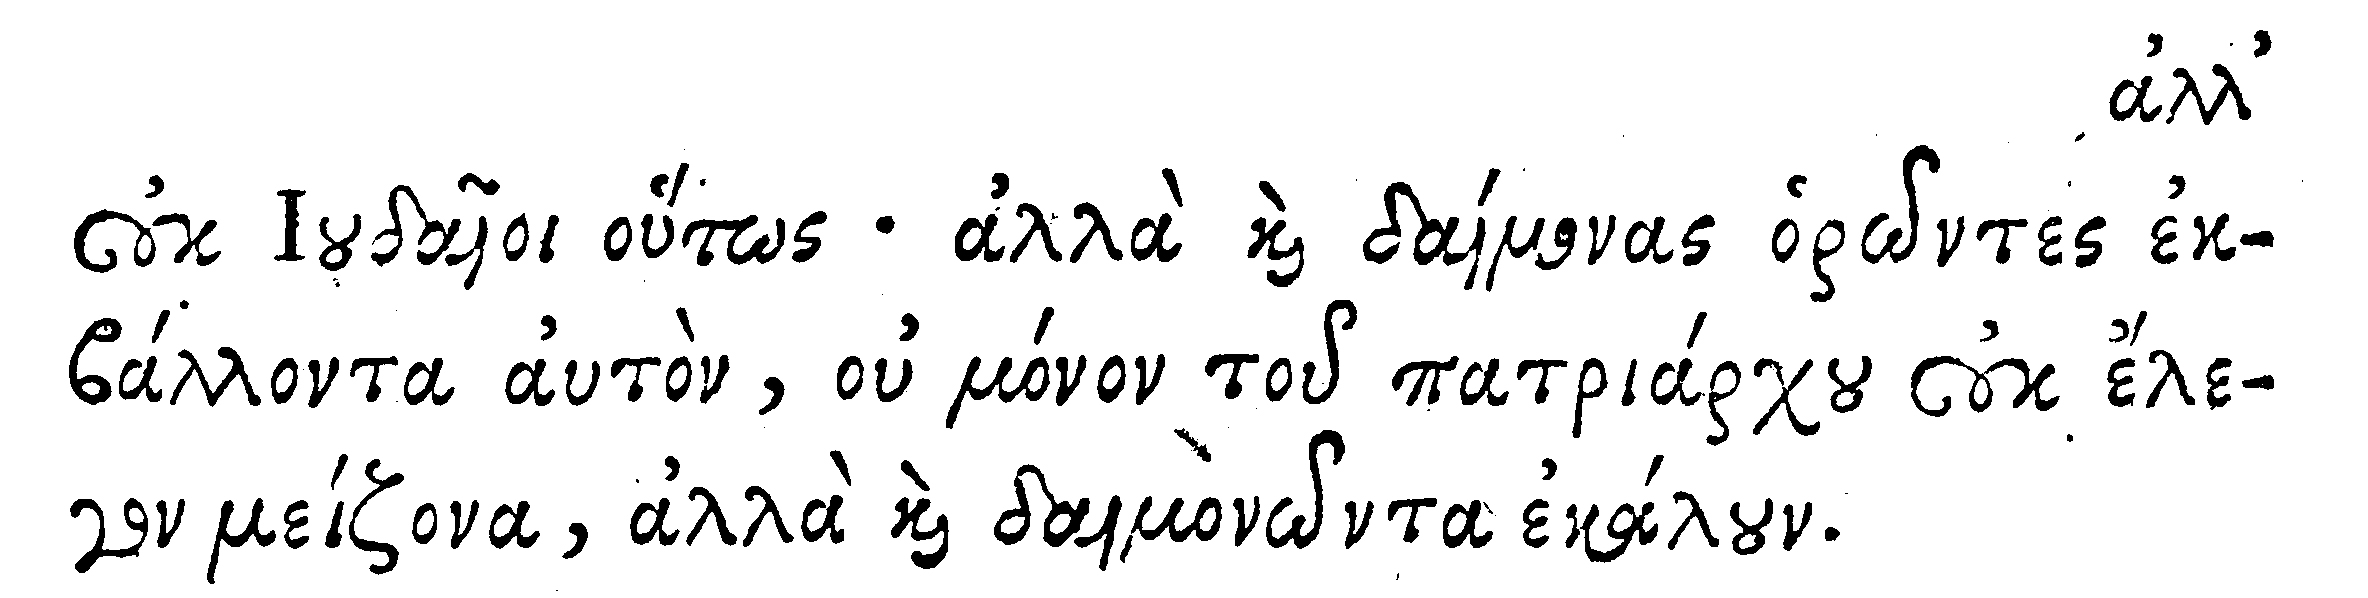 ἀλλ’
οὐκ Ιουδαῖοι οὕτως · ἀλλὰ καὶ δαίμονας ὁρῶντες ἐκ-
βάλλοντα ἀυτὸν, οὐ μόνον τοῦ πατριάρχου οὐκ ἔλε-
γον μείζονα, ἀλλὰ καὶ δαιμὸνῶντα ἐκάλουν.